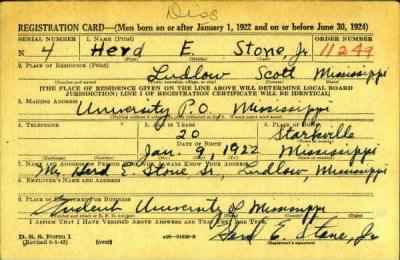 Disc
REGISTRATION CARD—(Men born on or after January 1, 1922 and on or before June 30, 1924)
SERIAL NUMBER 1. NAME (Print) ORDER NUMBER
N 4 Herd E. Stone, Jr 11249
(First) (Middle) (Last)
2. PLACE OF RESIDENCE (Print)
Ludlow Scott Mississippi
(Number and street) (Town, township, village, or city) (County) (State)
[THE PLACE OF RESIDENCE GIVEN ON THE LINE ABOVE WILL DETERMINE LOCAL BOARD
JURISDICTION; LINE 2 OF REGISTRATION CERTIFICATE WILL BE IDENTICAL]
3. MAILING ADDRESS
University P.O. Mississippi
4. TELEPHONE 5. AGE IN YEARS 6. PLACE OF BIRTH
20 Starkville
DATE OF BIRTH
Jan. 9, 1922 Mississippi
7. NAME AND ADDRESS OF PERSON WHO WILL ALWAYS KNOW YOUR ADDRESS
Mr. Herd E. Stone Sr, Ludlow, Mississippi
8. EMPLOYER'S NAME AND ADDRESS
9. PLACE OF EMPLOYMENT OR BUSINESS
Student University of Mississippi
I AFFIRM THAT I HAVE VERIFIED ABOVE ANSWERS AND THAT THEY ARE TRUE.
D. S. S. Form 1 Herd E. Stone, Jr
(Revised 6-1-42) (over) (Registrant's signature)